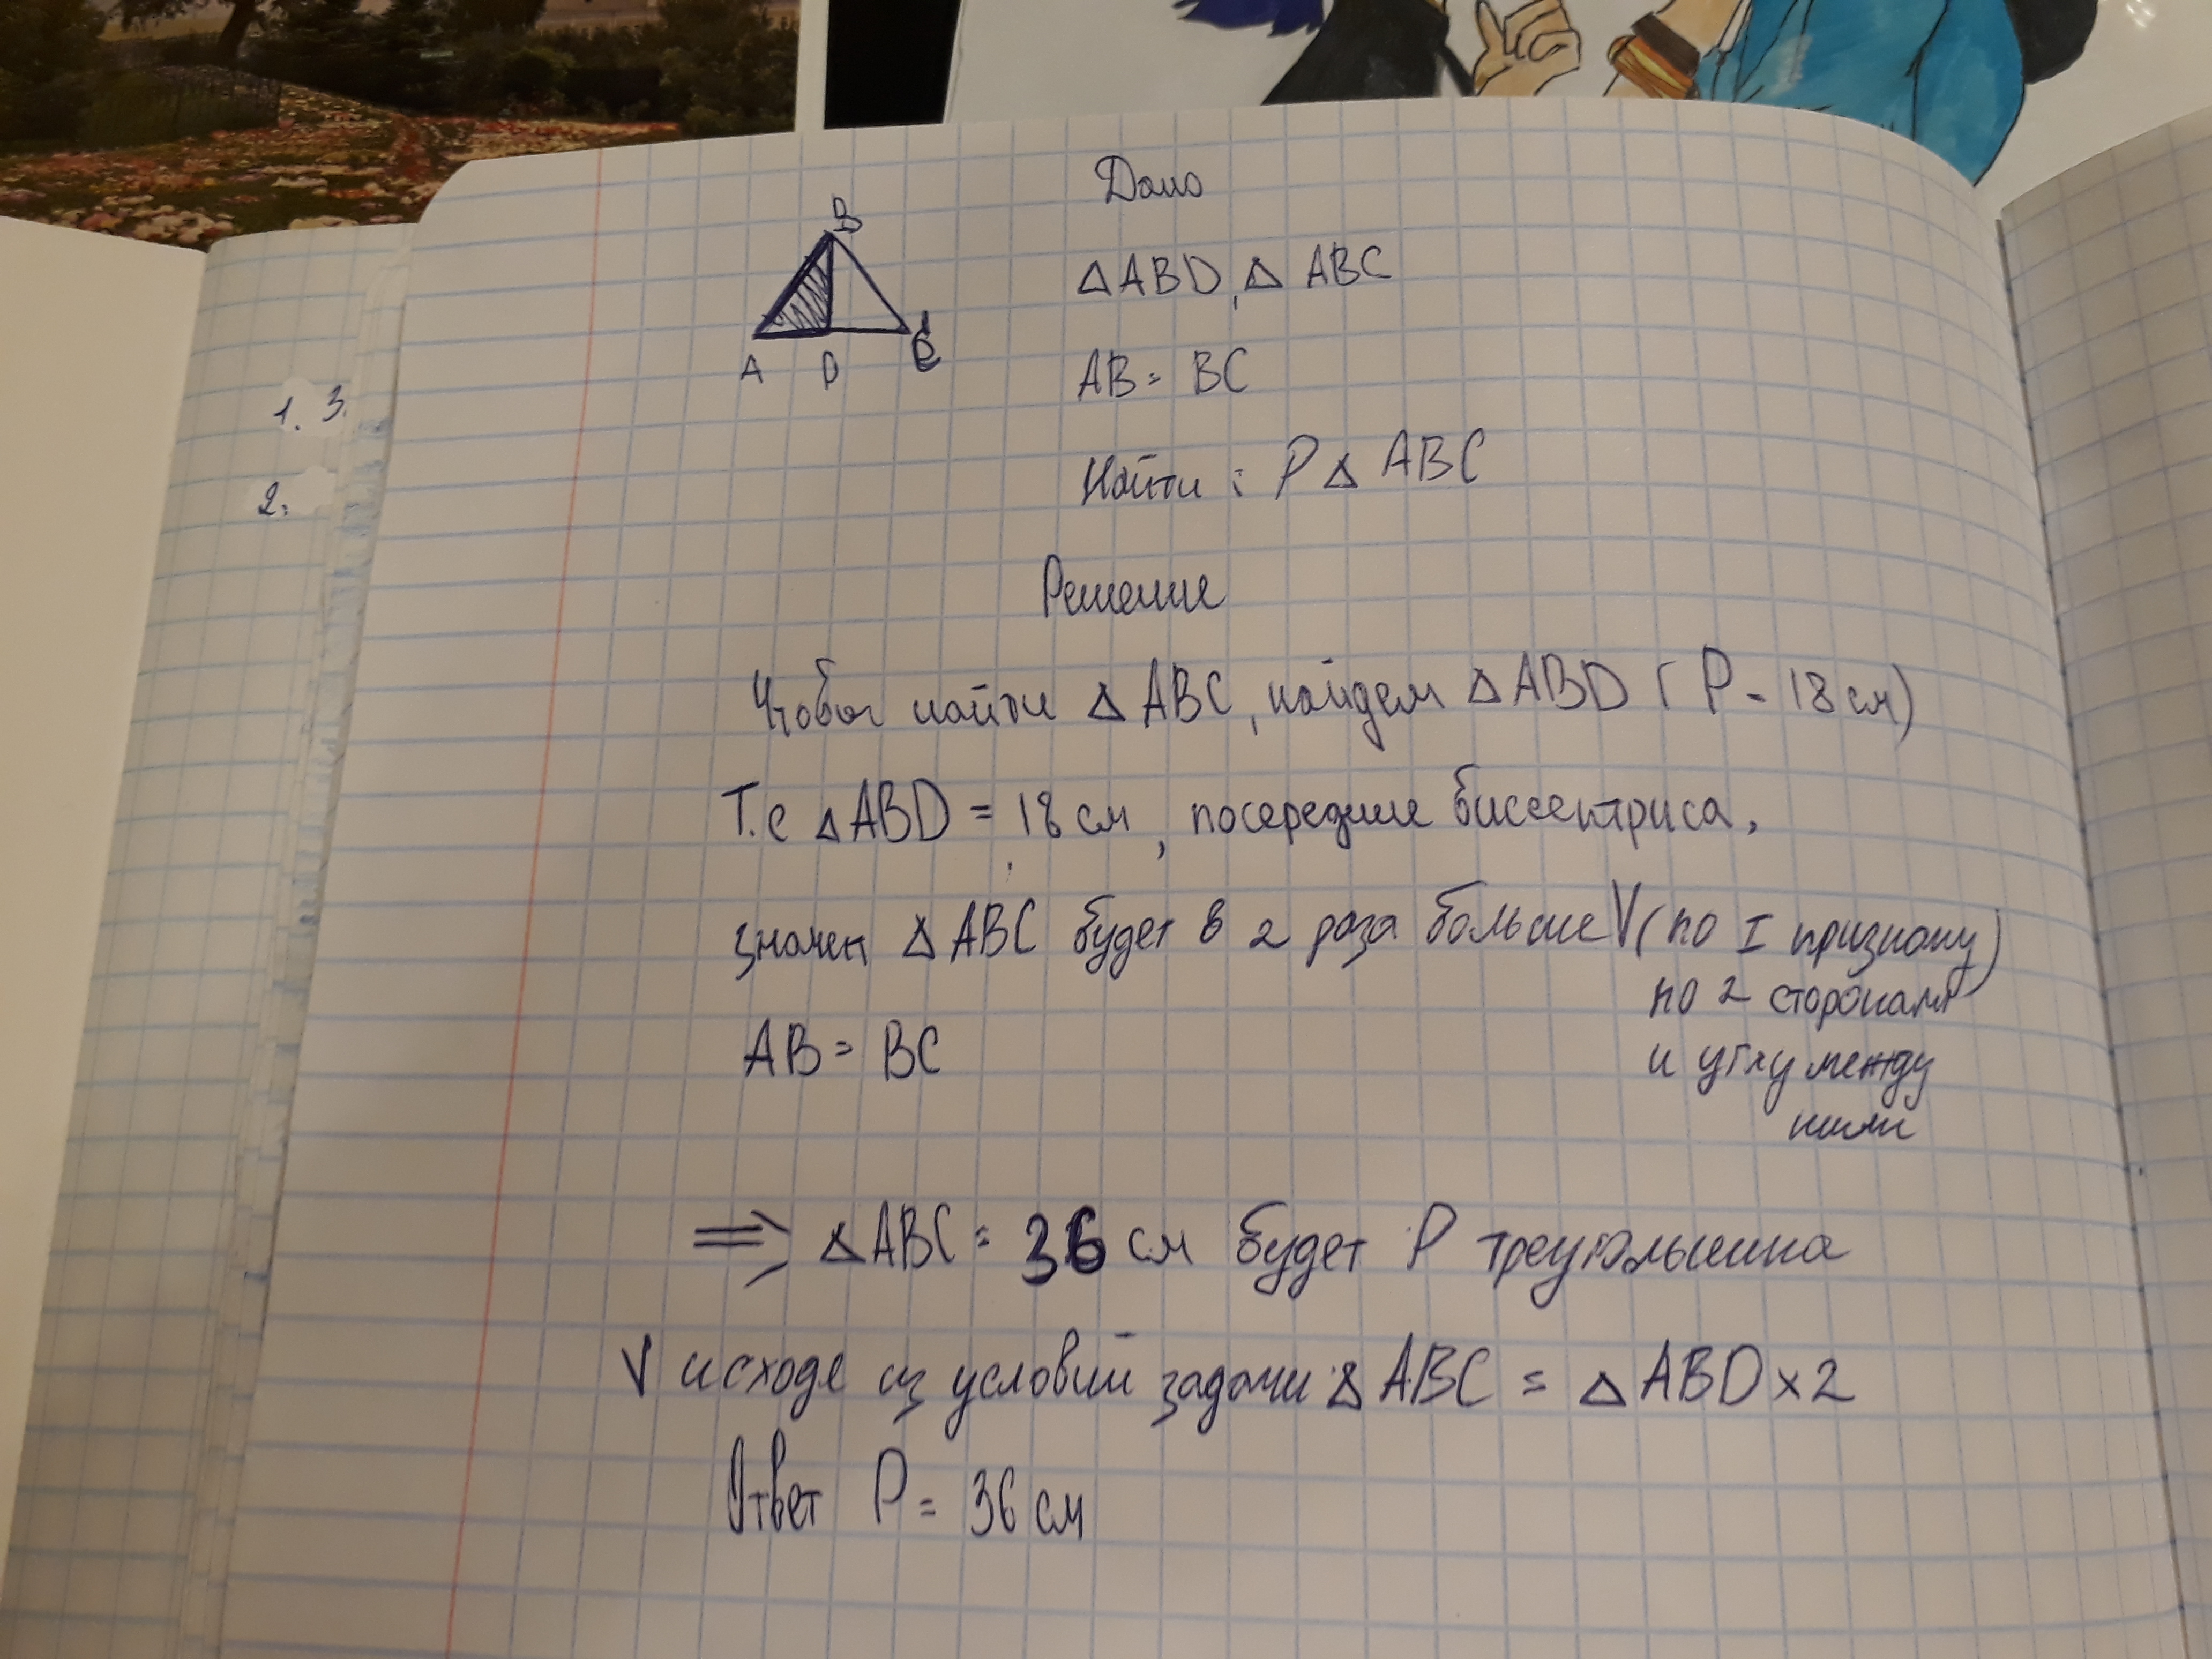 Дано
B
△ABD, △ ABC
A D C
AB = BC
1. 3.
Найти: P △ ABC
2.
Решение
Чтобы найти △ ABC, найдем △ABD (P = 18 см)
Т.с △ABD = 18 см, посередине биссектриса,
значит △ ABC будет в 2 раза больше V (по I признаку)
по 2 сторонам
и углу между
ними
AB = BC
⟹ △ABC = 36 см будет P треугольника
V исходе из условий задачи △ ABC = △ABD × 2
Ответ P = 36 см